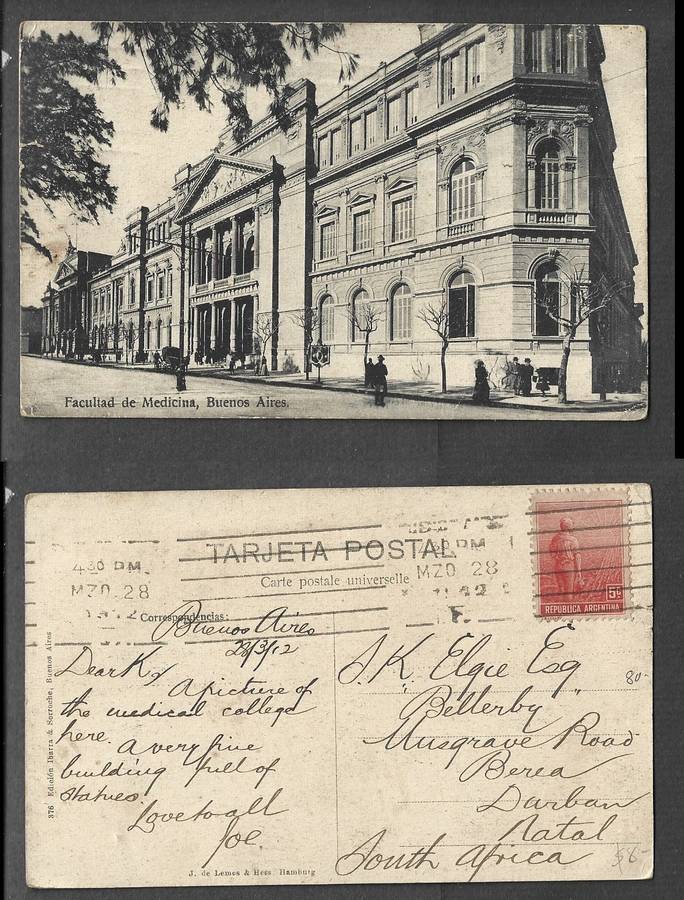 Facultad de Medicina, Buenos Aires.
TARJETA POSTAL
Carte postale universelle
430 PM
MZO 28
MZO 28
Correspondencias:
5c
REPUBLICA ARGENTINA
376 Edición Ibarra & Sorroche, Buenos Aires
Buenos Aires
28/3/12
Dear K
A picture of
the medical college
here. A very fine
building full of
statues.
Love to all
Joe.
J. K. Elgie Esq
"Bellerby"
Musgrave Road
Berea
Durban
Natal
South Africa
80-
$8-
J. de Lemos & Hess Hamburg